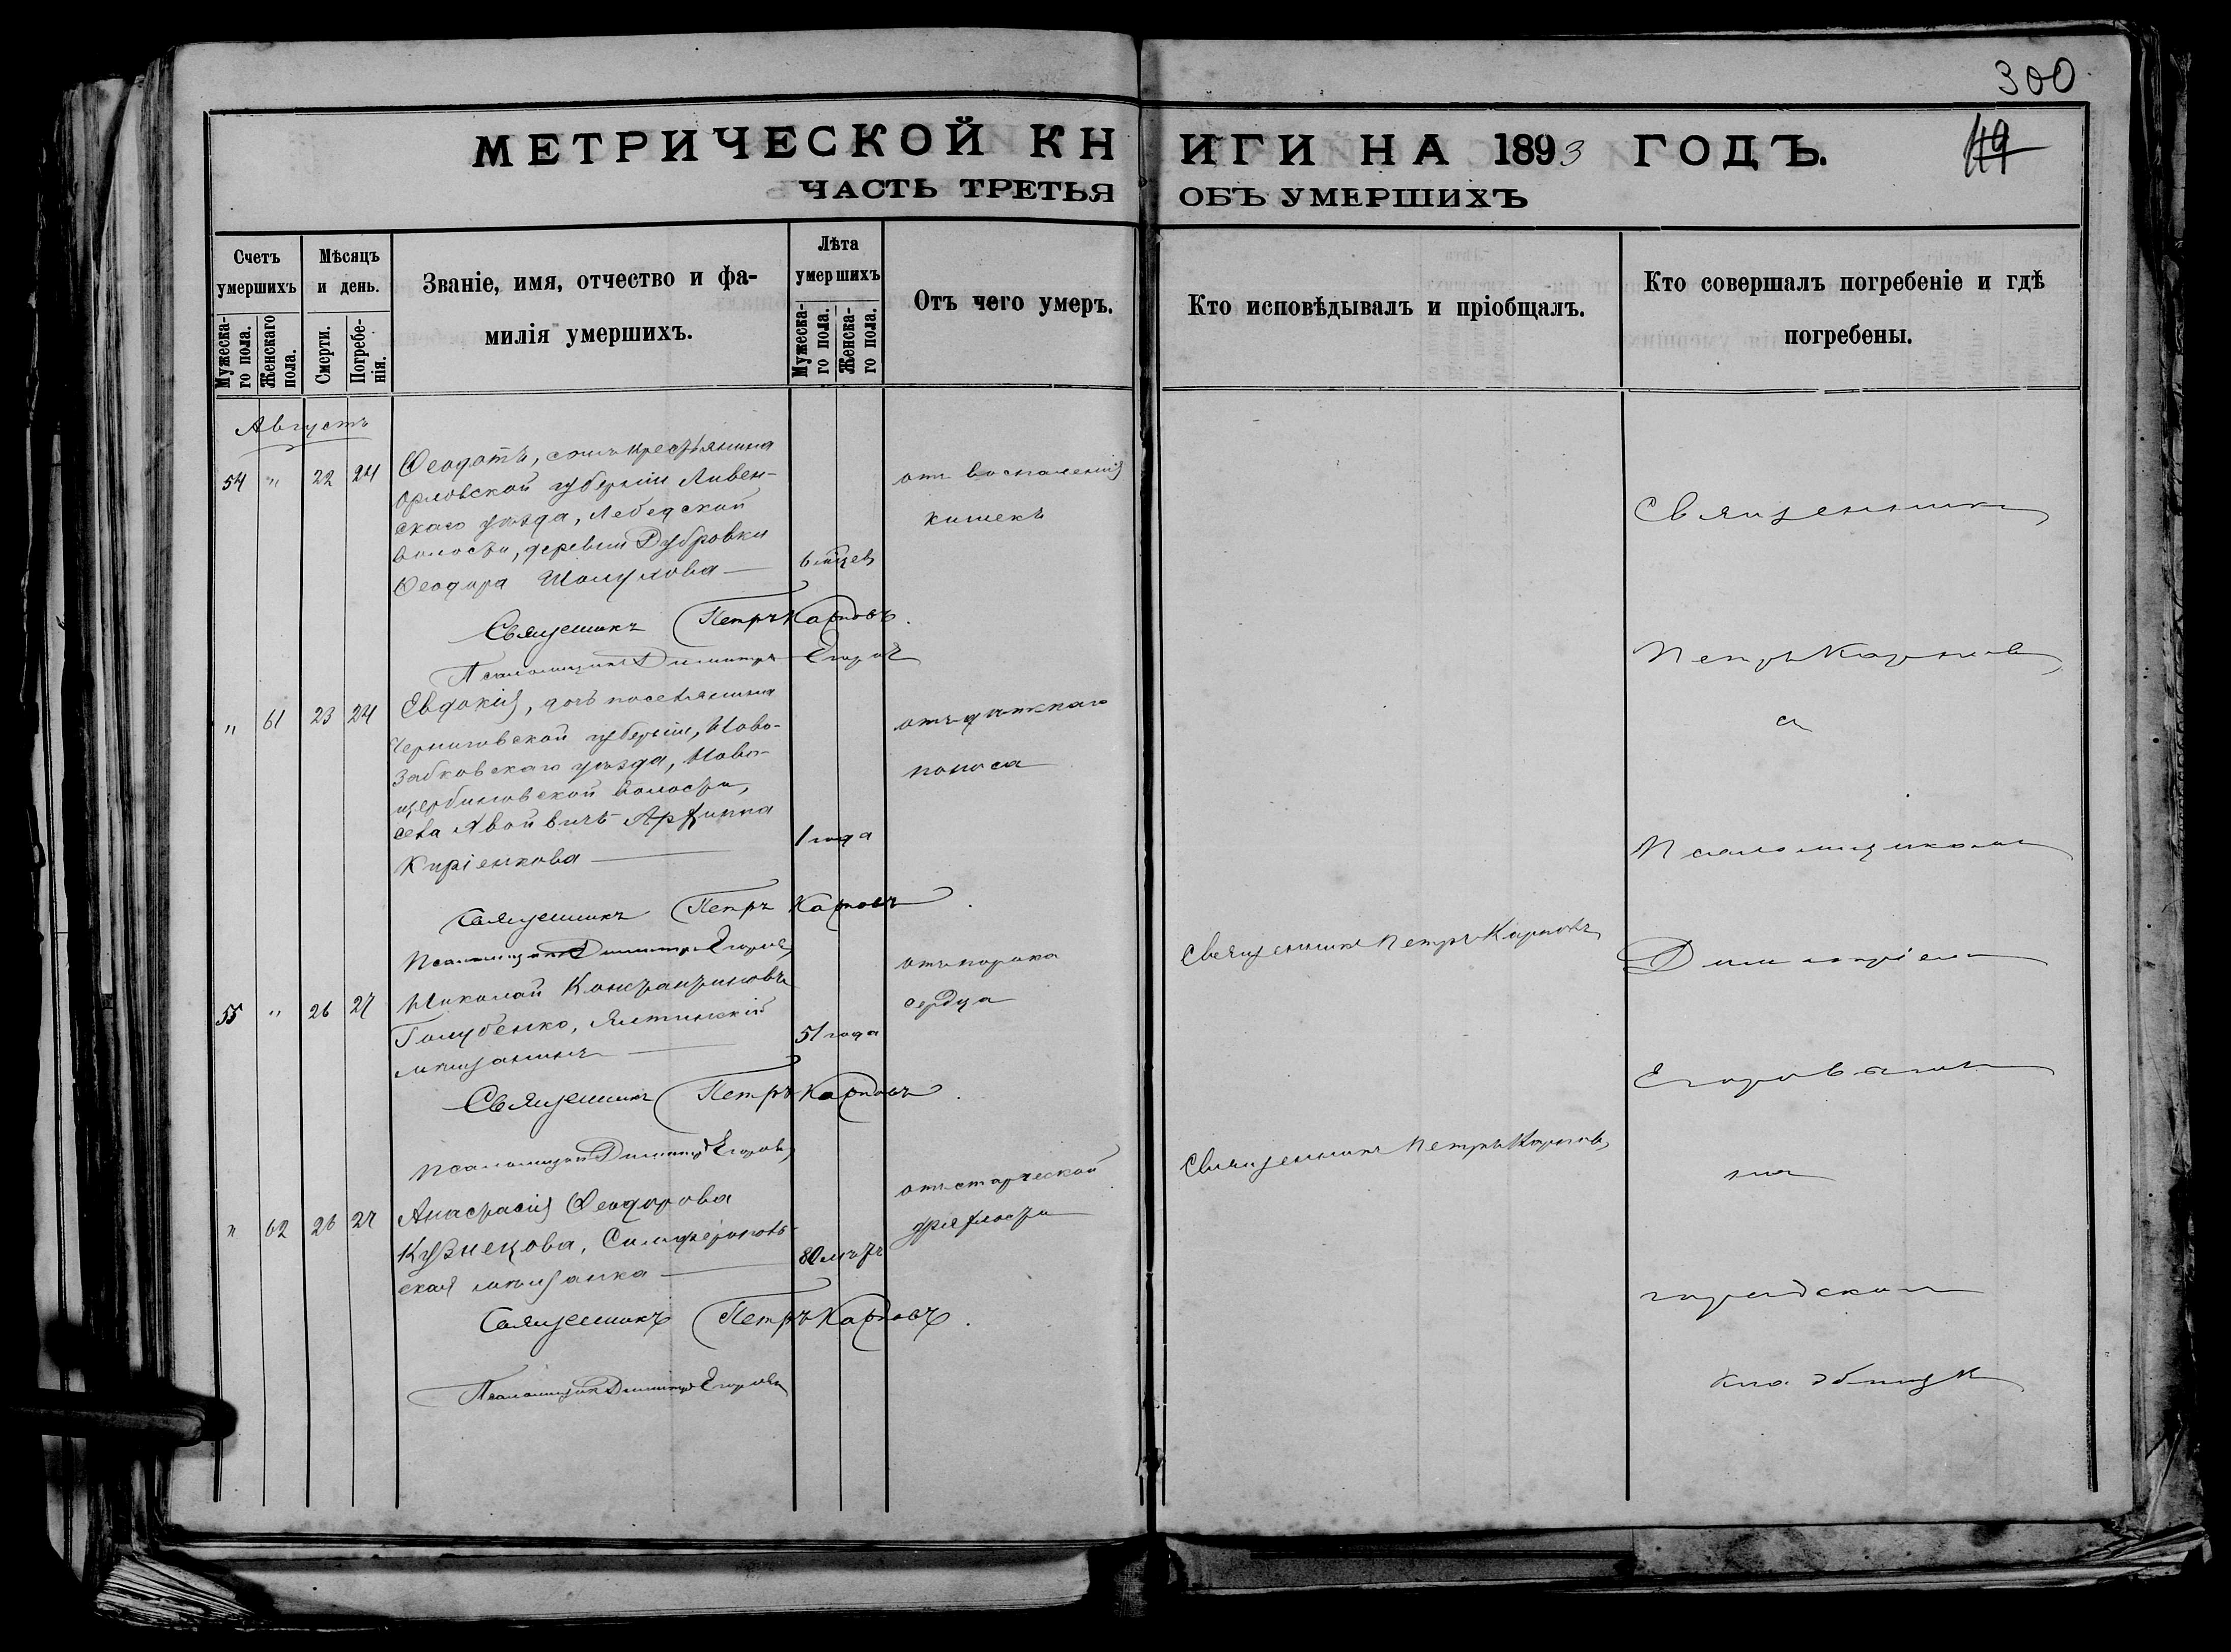 300
МЕТРИЧЕСКОЙ КНИГИ НА 1893 ГОДЪ.
119
ЧАСТЬ ТРЕТЬЯ ОБЪ УМЕРШИХЪ
Счетъ умершихъ
Мужеска-го пола.
Женскаго пола.
Мѣсяцъ и день.
Смерти.
Погребе-нія.
Званіе, имя, отчество и фа-
милія умершихъ.
Лѣта умершихъ
Мужеска-го пола.
Женска-го пола.
Отъ чего умеръ.
Кто исповѣдывалъ и пріобщалъ.
Кто совершалъ погребеніе и гдѣ
погребены.
Августъ
54 " 22 24
Ѳеодотъ, сынъ крестьянина
Орловской губерніи Ливен-
скаго уѣзда, Лебедской
волости, деревни Дубровки
Ѳеодора
6 мѣсцев
отъ воспаленія
кишекъ
Священникъ Петръ Карповъ.
Псаломщикъ Димитрій Егоровъ
" 61 23 24
Евдокія, дочь поселянина
Черниговской губерніи, Ново-
зыбковскаго уѣзда, Ново-
волости,
села
Киріенкова
1 года
отъ дѣтскаго
поноса
Священникъ Петръ Карповъ.
Псаломщикъ Димитрій Егоровъ
55 " 26 27
Николай Константиновъ
Голубенко, Ялтинскій
мѣщанинъ
51 года
отъ порока
сердца
Священникъ Петръ Карповъ
Священникъ Петръ Карповъ.
Псаломщикъ Димитрій Егоровъ
" 62 26 27
Анастасія Ѳеодорова
Кузнецова, Симферополь-
ская мѣщанка
80 лѣтъ
отъ старческой
дряхлости
Священникъ Петръ Карповъ
Священникъ Петръ Карповъ.
Псаломщикъ Димитрій Егоровъ
Священникъ
Петръ Карповъ
съ
Псаломщикомъ
Димитріемъ
Егоровымъ
на
городскомъ
кладбищѣ